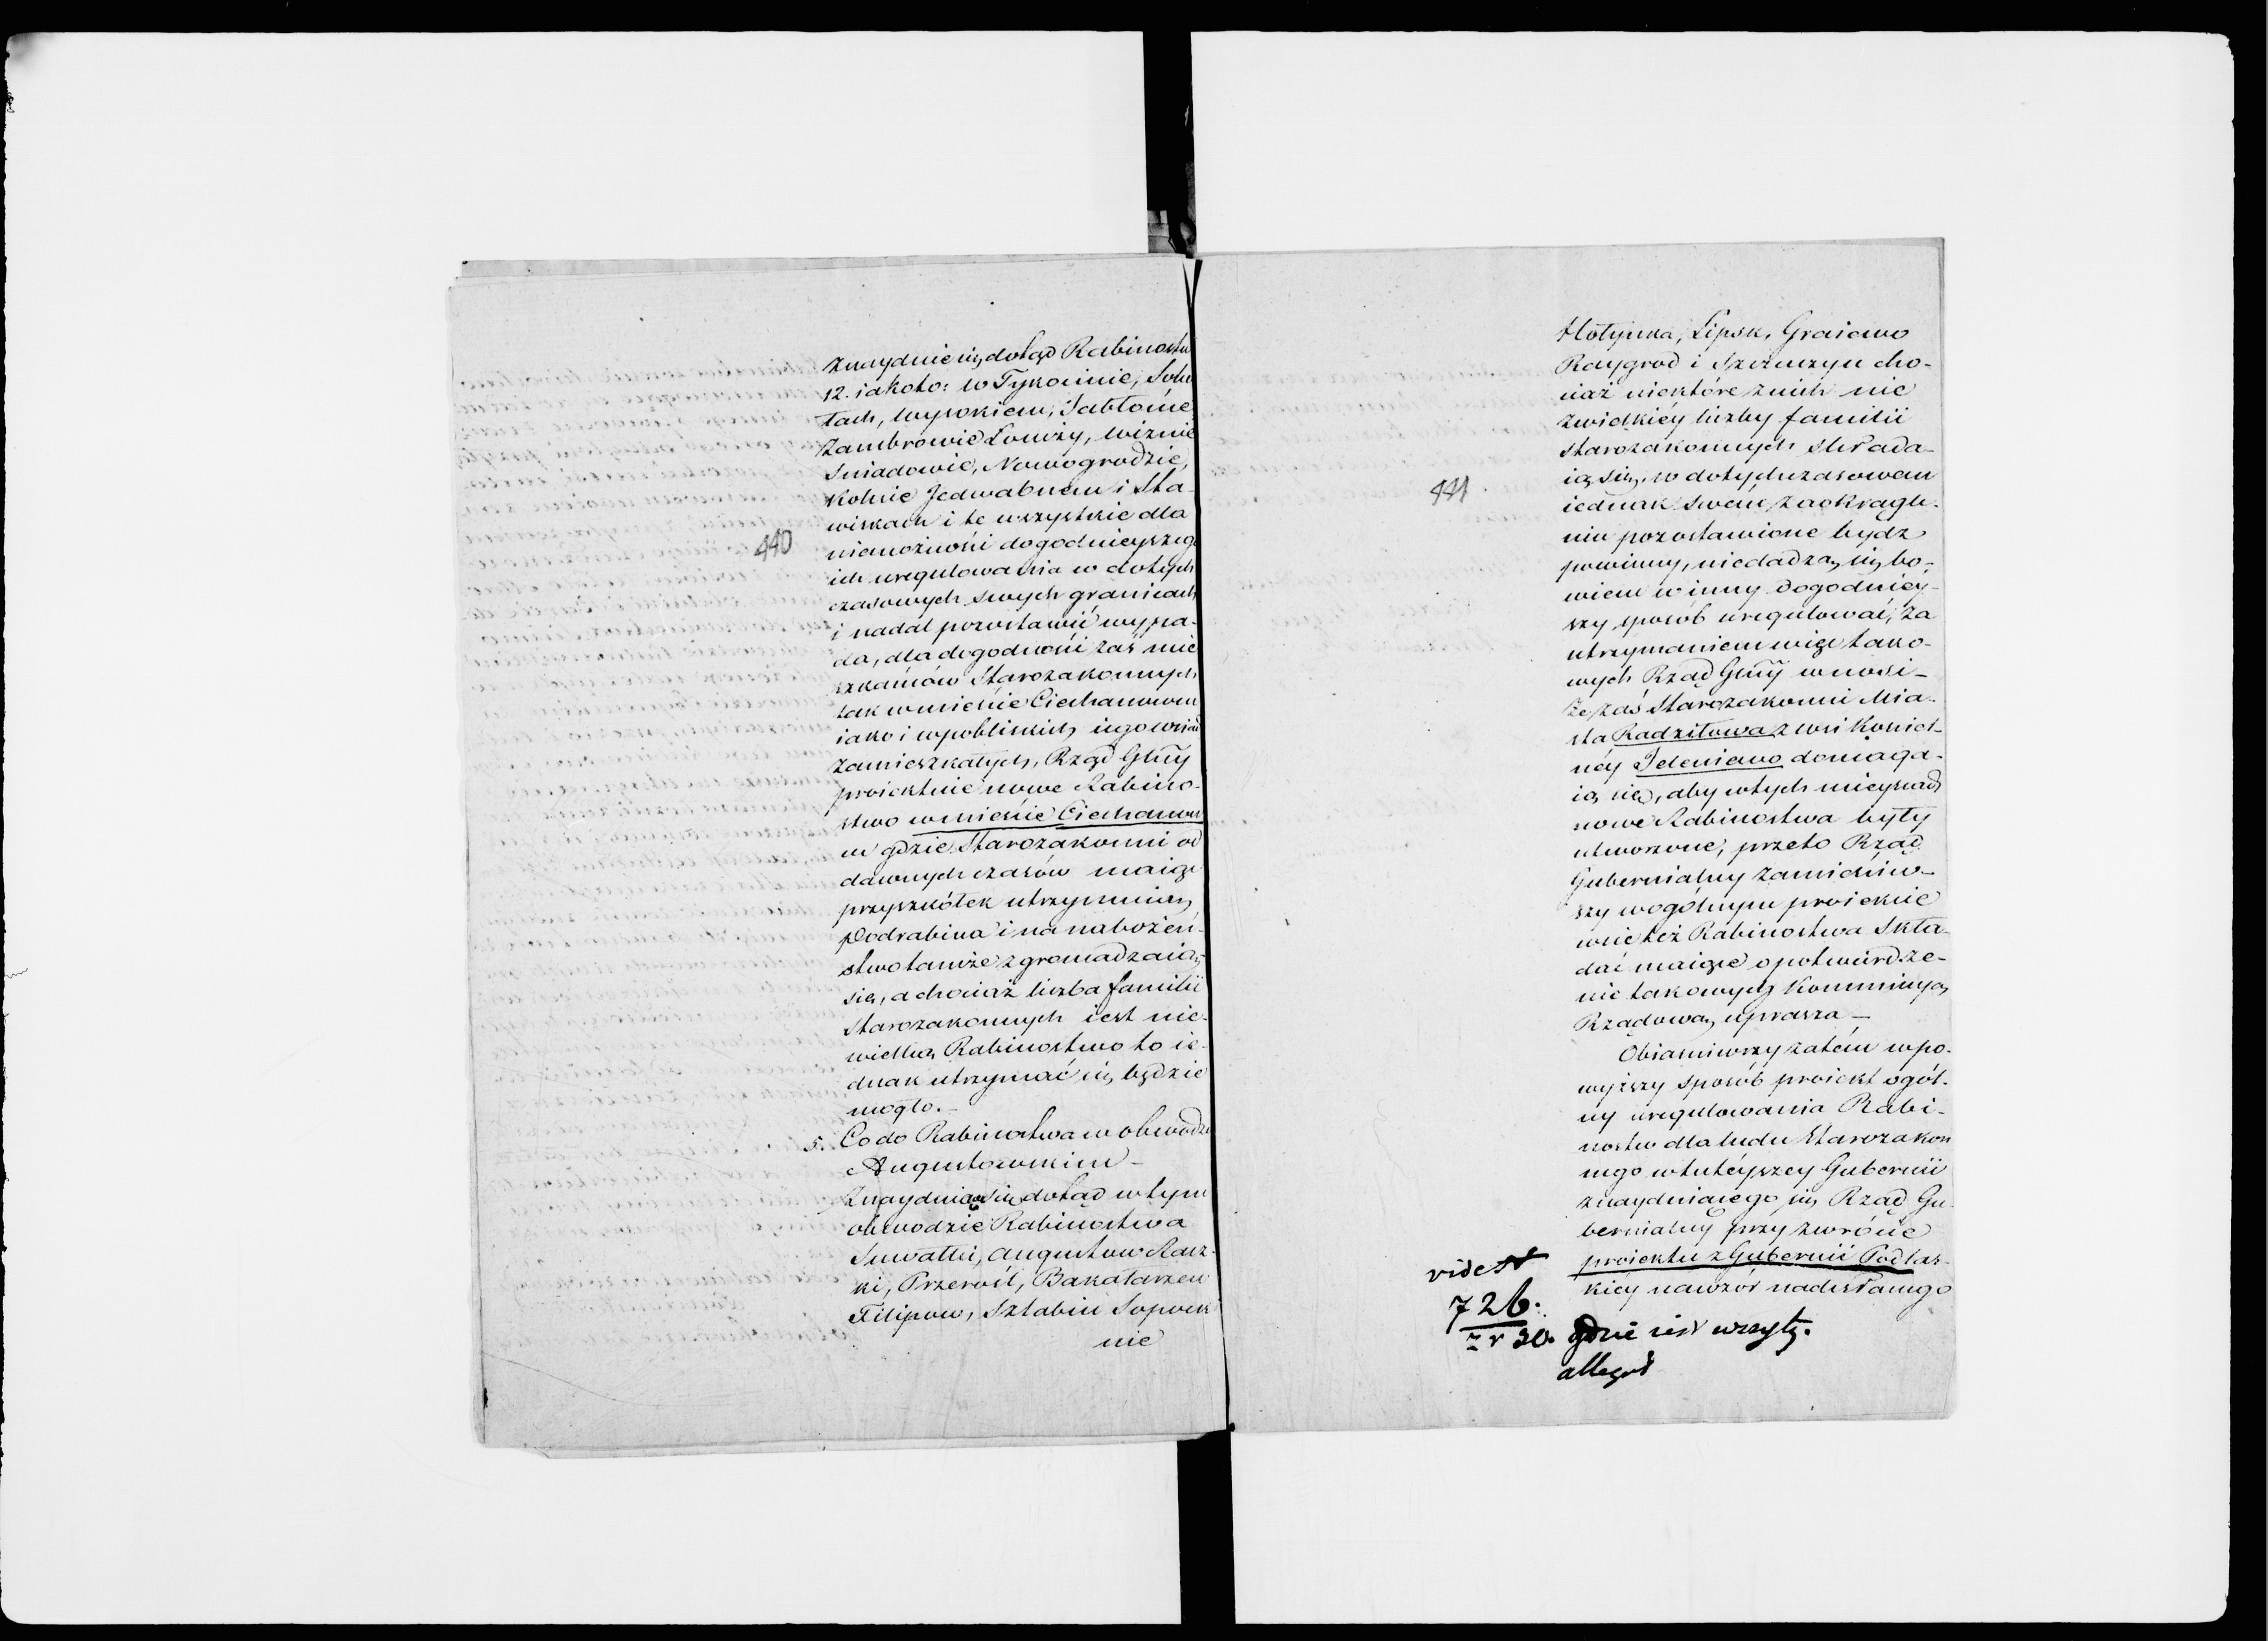 Znayduie się dotąd Rabinostw
12. iakoto: w Tykocinie, Soko
łach, Wysokiem, Jabłonie
Zambrowie Łomży, Wiznie
Sniadowie, Nowogrodzie,
Kolnie Jedwabnem i Sta-
wiskach i te wszystkie dla
440
niemożności dogodnieyszego
ich uregulowania w dotych
czasowych swych granicach
i nadal pozostawić wypa-
da, dla dogodności zaś mie
szkańców Starozakonnych
tak w mieście Ciechanowcu
iako i w pobliskich iego wsiach
zamieszkałych, Rząd Głny
proiektuie nowe Rabino-
stwo w mieście Ciechanow
cu gdzie Starozakonni od
dawnych czasów maiąc
przyszkółek utrzymuią
Podrabina i na nabożeń-
stwo tamże zgromadzaią
się, a chociaż liczba familii
Starozakonnych iest nie-
wielka Rabinostwo to ie-
dnak utrzymać się będzie
mogło.-
5. Co do Rabinostwa w obwodzie
Augustowskim-
Znayduią się dotąd w tym
obwodzie Rabinostwa
Suwałki, Augustow Racz-
ki, Przerośl, Bakałarzew
Filipow, Sztabin Sopock
nie
Hołynka, Lipsk, Graiewo
Raygrod i Szczuczyn cho-
ciaż niektóre z nich nie
z wielkiéy liczby familii
starozakonnych składa-
ią się, w dotychczasowem
441
iednak swem zaokrągle-
niu pozostawione bydz
powinny, niedadzą się bo-
wiem w inny dogodniéy-
szy sposób uregulować, za
utrzymaniem więc tako-
wych Rząd Głny wnosi-
Że zaś Starozakonni Mia-
sta Radziłowa z wsi Kościel-
néy Jeleniewo domaga-
ią się, aby w tych mieyscach
nowe Rabinostwa były
utworzone, przeto Rząd
Gubernialny zamieściw-
szy w ogólnym proiekcie
wnieść też Rabinostwa Skła-
dać maiące o potwierdze-
nie takowych Kommissyą
Rządową uprasza-
Obiasniwszy zatém w po-
wyższy sposób proiekt ogól-
ny uregulowania Rabi-
nostw dla ludu Starozakon
nego w tutéyszey Gubernii
znayduiącego się Rząd Gu-
bernialny przy zwrócie
proiektu z Gubernii Podlas-
kiéy nawzór nadesłanego
726.
z r 30. gdzie iest wszyty.
allegat